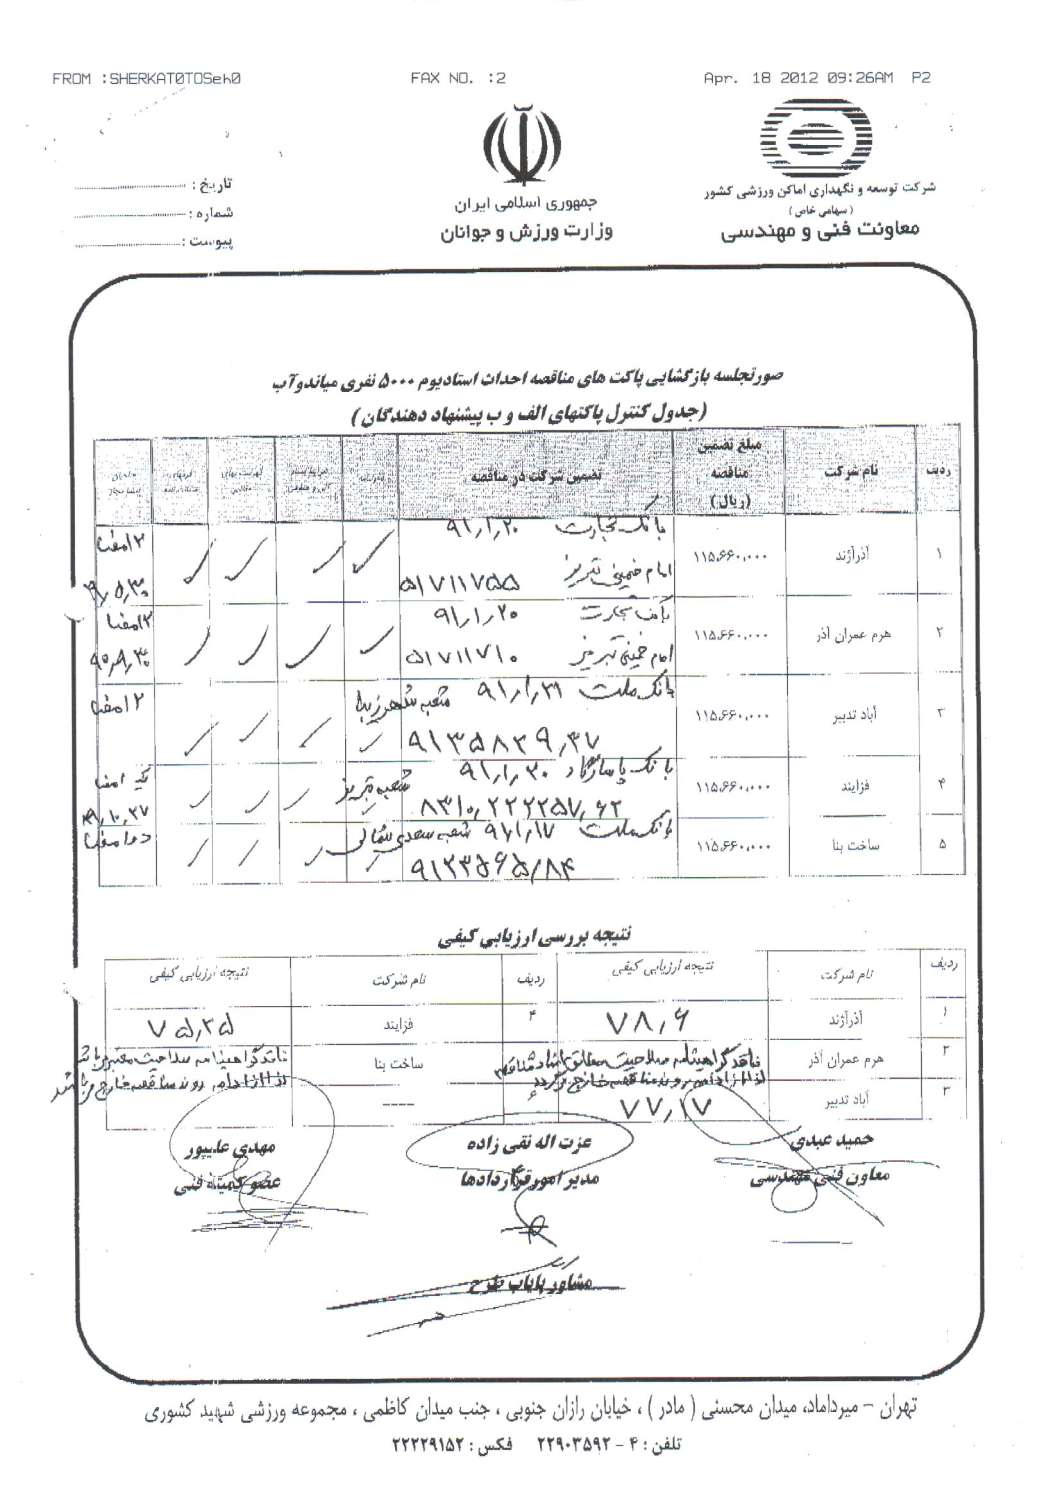 FROM :SHERKAT0TOSeh0 FAX NO. :2 Apr. 18 2012 09:26AM P2
شرکت توسعه و نگهداری اماکن ورزشی کشور
(سهامی خاص)
معاونت فنی و مهندسی
جمهوری اسلامی ایران
وزارت ورزش و جوانان
تاریخ :
شماره :
پیوست :
صورتجلسه بازگشایی پاکت های مناقصه احداث استادیوم ۵۰۰۰ نفری میاندوآب
(جدول کنترل پاکتهای الف و ب پیشنهاد دهندگان)
ردیف نام شرکت مبلغ تضمین مناقصه (ریال) تضمین شرکت در مناقصه
۱ آذرآژند ۱۱۵،۶۶۰،۰۰۰ بانک تجارت ۹۱,۱,۲۰ ۲ امضا
امام خمینی تبریز ۵۱۷۱۱۷۵۵
۲ هرم عمران آذر ۱۱۵،۶۶۰،۰۰۰ بانک تجارت ۹۱,۱,۲۰
امام خمینی تبریز ۵۱۷۱۱۷۱۰ ۹۰,۹,۳۰
۳ آباد تدبیر ۱۱۵،۶۶۰،۰۰۰ بانک ملت شعبه شهر زیبا ۲ امضا
۴ فزایند ۱۱۵،۶۶۰،۰۰۰ بانک پاسارگاد ۹۱,۱,۳۰ شعبه تبریز یک امضا
۵ ساخت بنا ۱۱۵،۶۶۰،۰۰۰ بانک ملت شعبه سعدی شمالی دو امضا
نتیجه بررسی ارزیابی کیفی
ردیف نام شرکت نتیجه ارزیابی کیفی ردیف نام شرکت نتیجه ارزیابی کیفی
۱ آذرآژند ۷۸,۶ ۴ فزایند ۷۵,۲۵
۲ هرم عمران آذر فاقد گواهینامه صلاحیت ساخت بنا فاقد گواهینامه صلاحیت معتبر می باشد
لذا از ادامه روند مناقصه خارج می باشد
۳ آباد تدبیر ۷۷,۱۷ ----
حمید عبدی
معاون فنی مهندسی
عزت اله نقی زاده
مدیر امور قراردادها
مهدی علیپور
عضو کمیته فنی
مشاور پایاب طرح
تهران – میرداماد، میدان محسنی ( مادر ) ، خیابان رازان جنوبی ، جنب میدان کاظمی ، مجموعه ورزشی شهید کشوری
تلفن : ۴ – ۲۲۹۰۳۵۹۲ فکس : ۲۲۲۲۹۱۵۲